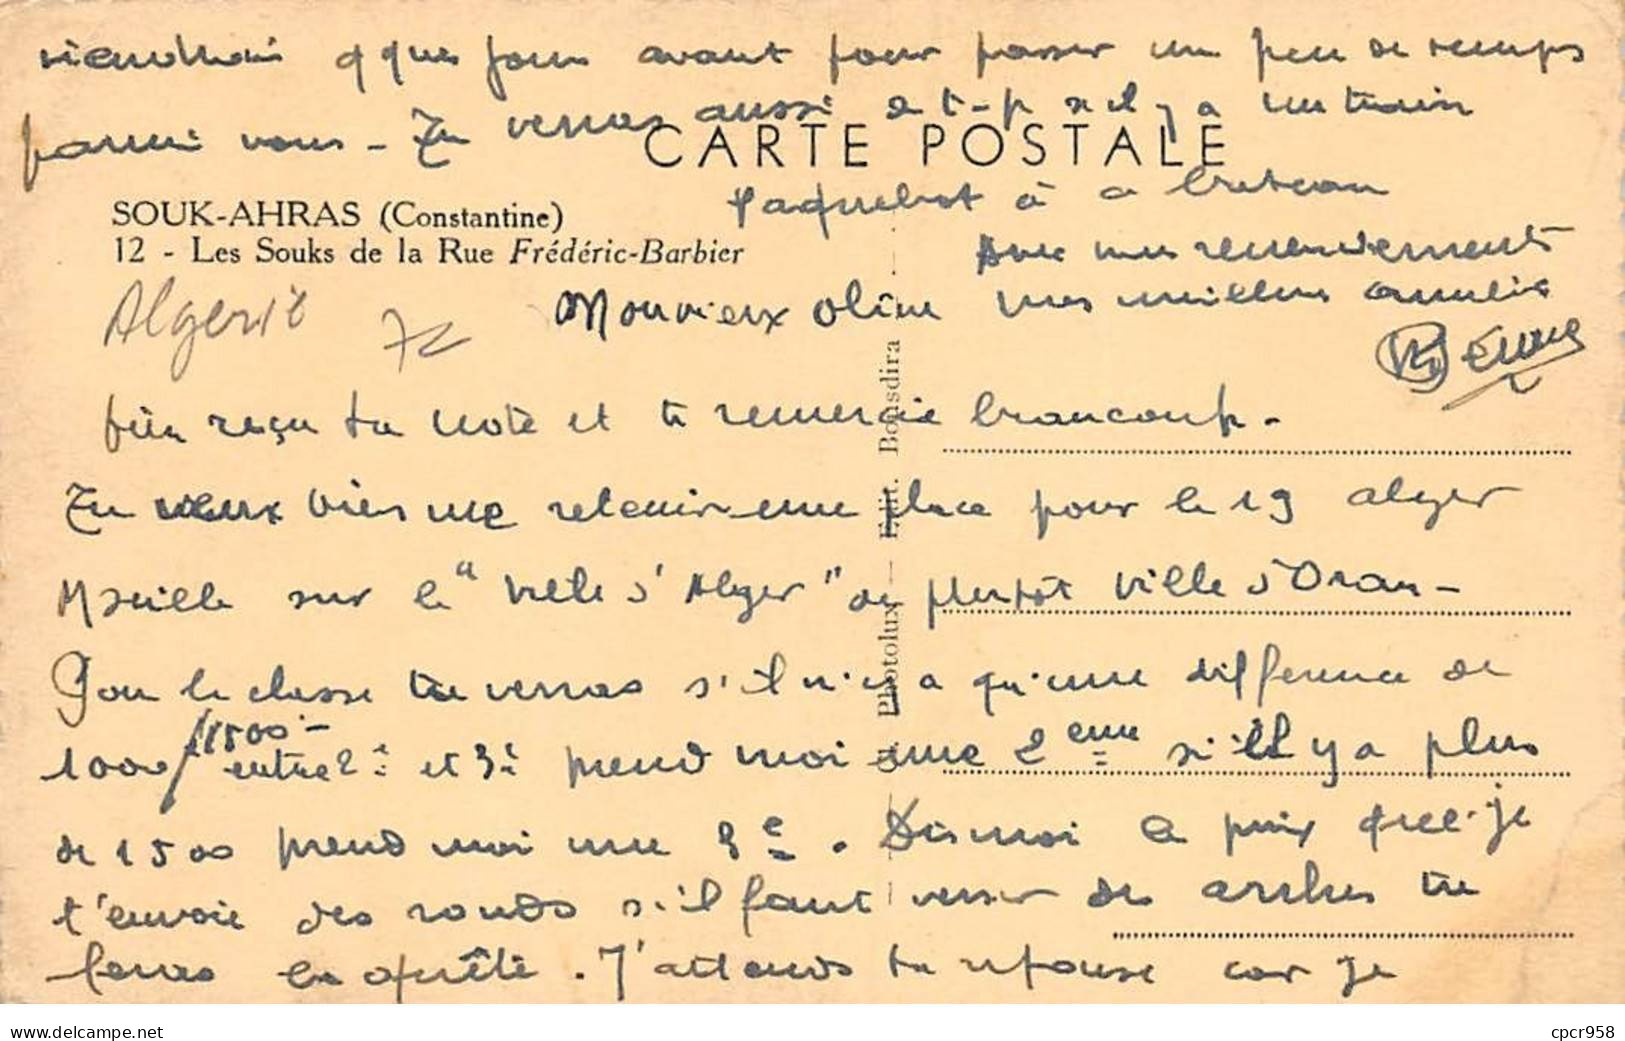 viendrai qques jours avant pour passer un peu de temps
parmi vous - Tu verras aussi s'il y a un train
CARTE POSTALE
paquebot à ce bateau
SOUK-AHRAS (Constantine)
12 - Les Souks de la Rue Frédéric-Barbier
Avec mes remerciements
mes meilleures amitiés
Algerie
72
Mon vieux
bien reçu ta note et te remercie beaucoup -
Tu veux bien me retenir une place pour le 19 alger
Mseille sur le "Ville d'Alger" ou plutôt Ville d'Oran -
Pour la classe tu verras s'il n'y a qu'une difference de
1000/1500 - entre 2è et 3è prend moi une 2eme s'il y a plus
de 1500 prend moi une 3e. Dis moi le prix que je
t'envoie des ronds s'il faut verser des arrhes tu
feras en quête. J'attends ta réponse car je
Photolux - Edit. Bousdira
delcampe.net
cpcr958